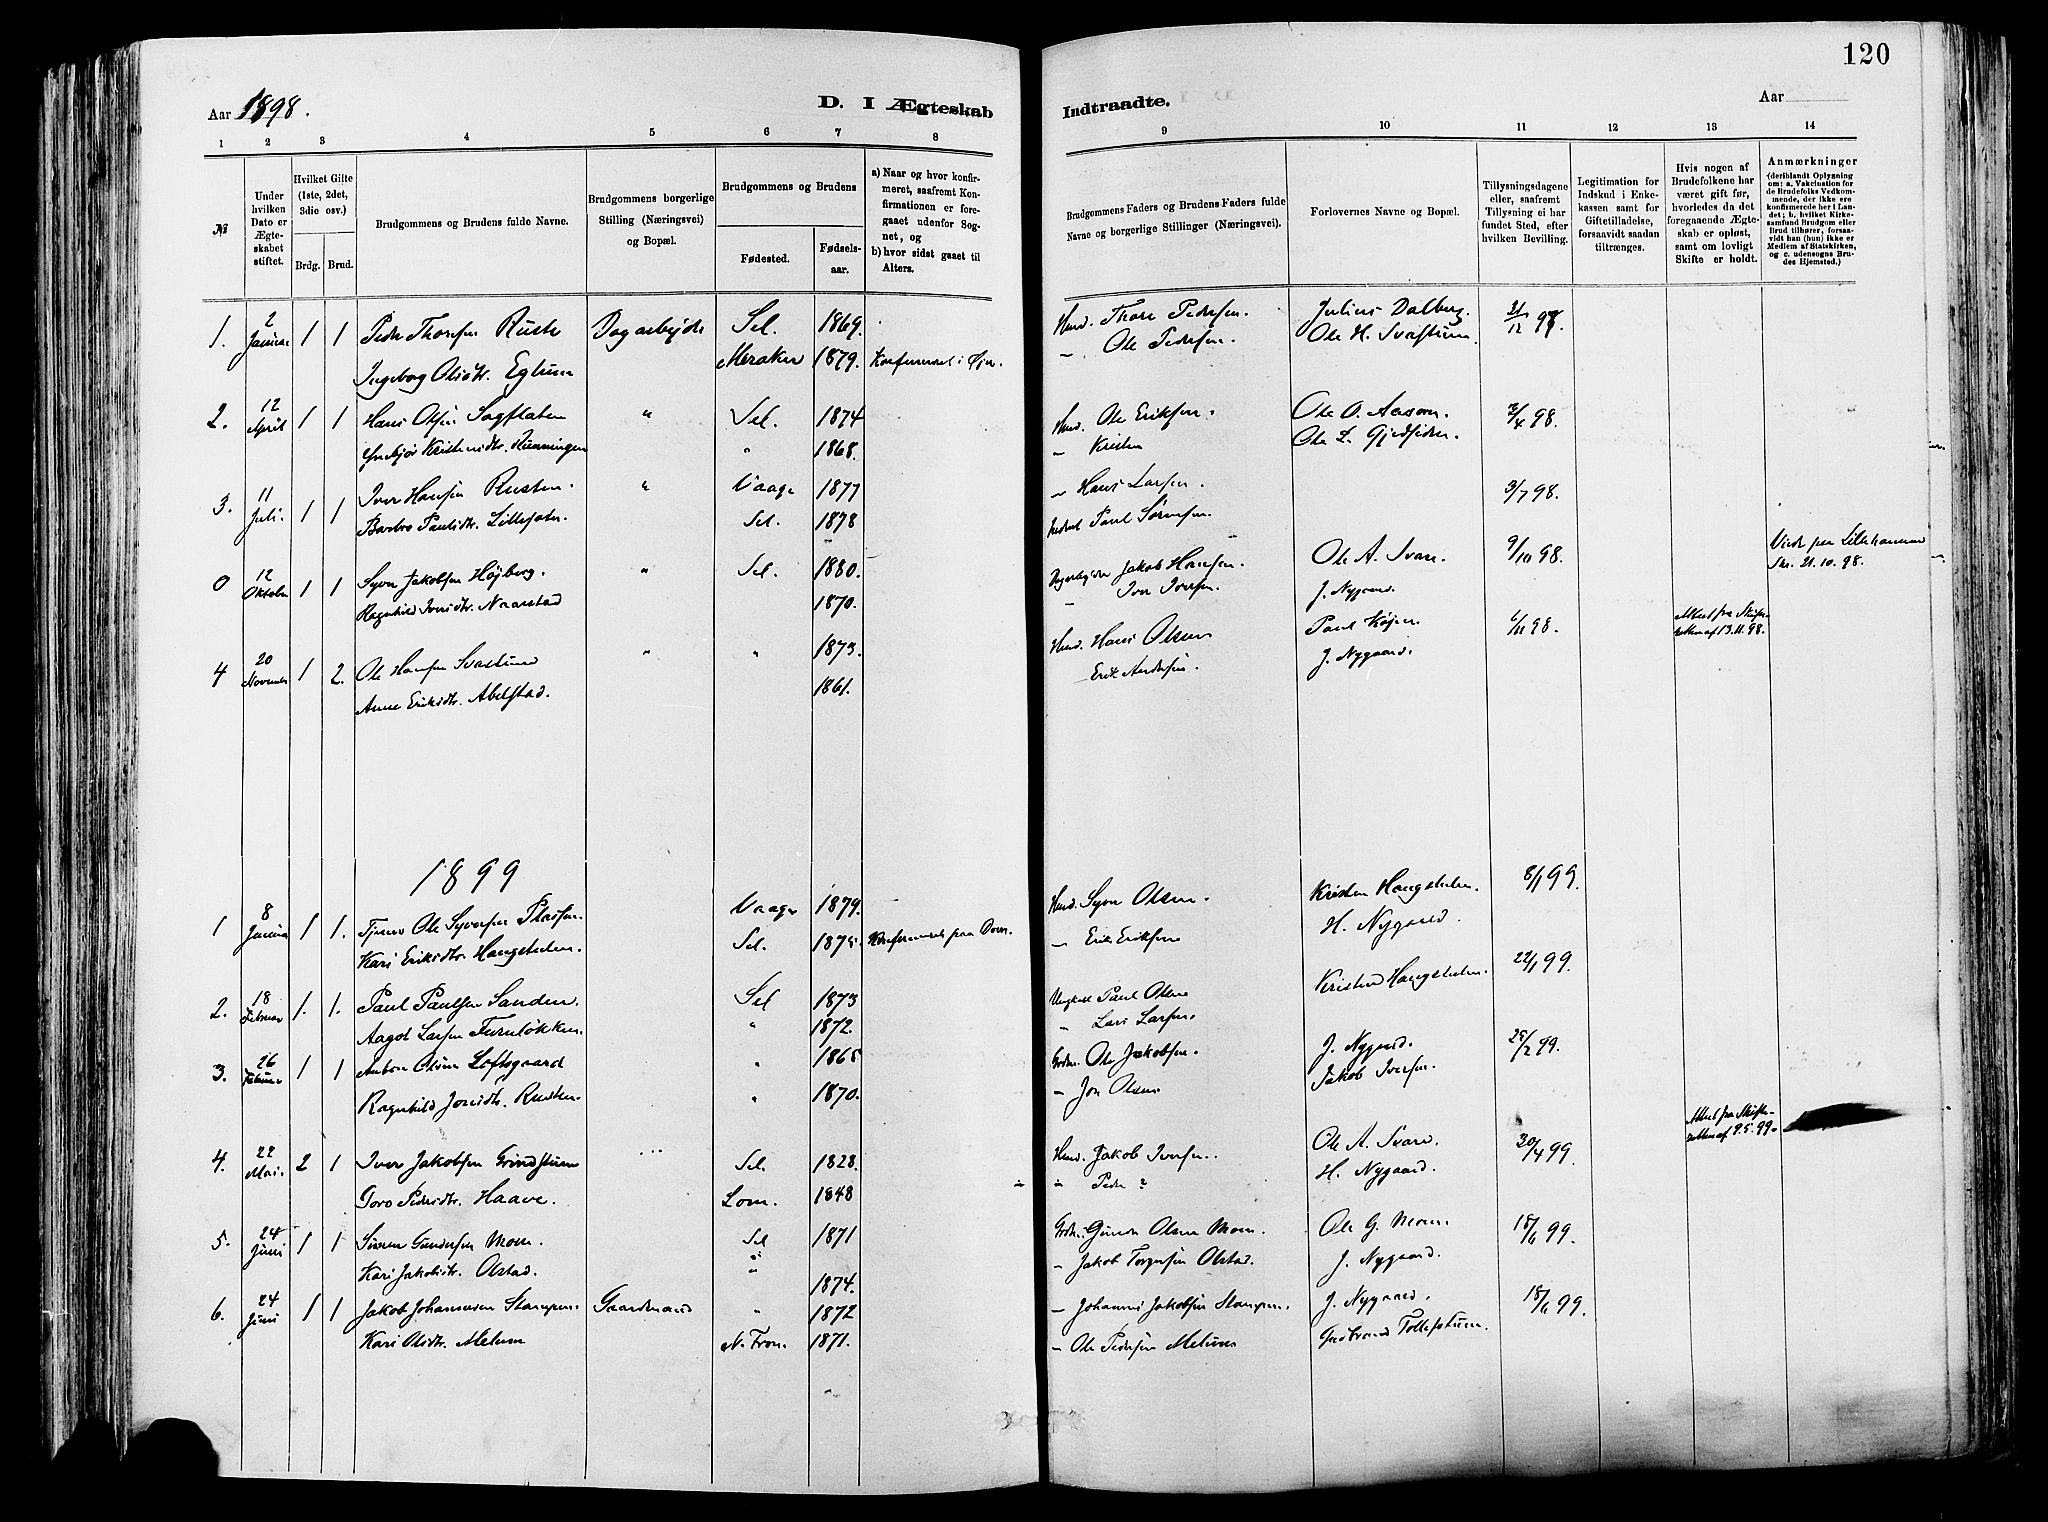 120
Aar 1898.
D. I Ægteskab
Indtraadte.
Aar
1 2 3 4 5 6 7 8
9 10 11 12 13 14
№
Under hvilken Dato er Ægteskabet stiftet.
Hvilket Gifte (1ste, 2det, 3die osv.)
Brdg. Brud.
Brudgommens og Brudens fulde Navne.
Brudgommens borgerlige Stilling (Næringsvei) og Bopæl.
Brudgommens og Brudens
Fødested.
Fødselsaar.
a) Naar og hvor konfirmeret, saafremt Konfirmationen er foregaaet udenfor Sognet, og
b) hvor sidst gaaet til Alters.
Brudgommens Faders og Brudens Faders fulde Navne og borgerlige Stillinger (Næringsvei).
Forlovernes Navne og Bopæl.
Tillysningsdagene eller, saafremt Tillysning ei har fundet Sted, efter hvilken Bevilling.
Legitimation for Indskud i Enkekassen samt for Giftetilladelse, forsaavidt saadan tiltrænges.
Hvis nogen af Brudefolkene har været gift før, hvorledes da det foregaaende Ægteskab er opløst, samt om lovligt Skifte er holdt.
Anmærkninger (deriblandt Oplysning om: a. Vakcination for de Brudefolks Vedkommende, der ikke ere konfirmerede her i Landet; b. hvilket Kirkesamfund Brudgom eller Brud tilhører, forsaavidt han (hun) ikke er Medlem af Statskirken, og c. udensogns Brudes Hjemsted.)
1. 2 Januar 1 1 Peder Thoresen Rusti Dagarbejde Sel. 1869. Husm. Thore Pedersen. Julius Dalberg. 21/12 97.
Ingeborg Olsdtr. Eglum Meraker 1879. Konfirmeret i — Ole Pedersen. Ole H. Svastuen.
2. 12 April 1 1 Hans Olsen Sagflaten " Sel. 1874 Husm. Ole Eriksen. Ole O. Aasom. 3/4 98.
Kristensdtr. Rønningen " 1868. — Kristen Ole L. Gjedsiden.
3. 11 Juli. 1 1 Iver Hansen Rusten. " Vaage 1877 — Hans Larsen. 3/7 98.
Barbro Paulsdtr. Sel. 1878 Paul Sørensen.
0 12 Oktober 1 1 Syver Jakobsen Højberg. " Sel. 1880. Jakob Hansen. Ole A. Svare. 9/10 98. Viede paa Lillehammer
Ragnhild Iversdtr. Naarstad 1870. — Iver Iversen. J. Nygaard. 21.10.98.
4 20 November 1 2. Ole Hansen Svastuen " " 1873. Husm. Hans Olsen Paul Køjen 6/11 98. Attest fra Skifteretten af 13.11.98.
Anne Eriksdtr. Abelstad. 1861. — Erik Andersen. J. Nygaard.
1899
1 8 Januar 1 1. Ole Syversen Vaage 1879. Husm. Syver Olsen. Kristen Haugstulen. 8/1 99.
Kari Eriksdtr. Haugstulen. Sel. 1875. Konfirmeret paa Dovre. — Erik Eriksen H. Nygaard.
2. 18 Februar 1. 1. Paul Paulsen Sanden. Sel 1873 Ungkarl Paul Olsen Kristen Haugstulen. 22/1 99.
Aagot Larsen Furuløkken. " 1872. " Lars Larsen
3. 26 Februar 1 1 Anton Olsen Loftsgaard " 1865 Grdm. Ole Jakobsen. J. Nygaard. 25/2 99.
Ragnhild Jonsdtr. Rusten. " 1870. — Jon Olsen Jakob Iversen.
4. 22 Mai. 2 1 Iver Jakobsen Grindstuen Sel. 1828. Husm. Jakob Iversen. Ole A. Svare. 30/4 99. Attest fra Skifteretten af 9.5.99.
Toro Pedersdtr. Haave. Lom. 1848 " Peder ? H. Nygaard.
5. 24 Juni 1 1 Simen Gundersen Moen. Sel 1871 Grdm. Gunder Olsen Moen. Ole G. Moen. 18/6 99.
Kari Jakobsdtr. Olstad. " 1874. — Jakob Torgersen Olstad. J. Nygaard.
6. 24 Juni 1 1 Jakob Johannesen Stampen. Gaardmand " 1872 — Johannes Jakobsen Stampen. J. Nygaard. 18/6 99.
Kari Olsdtr. Melum N. Fron. 1871. — Ole Pedersen Melum Gudbrand Tollefstuen.